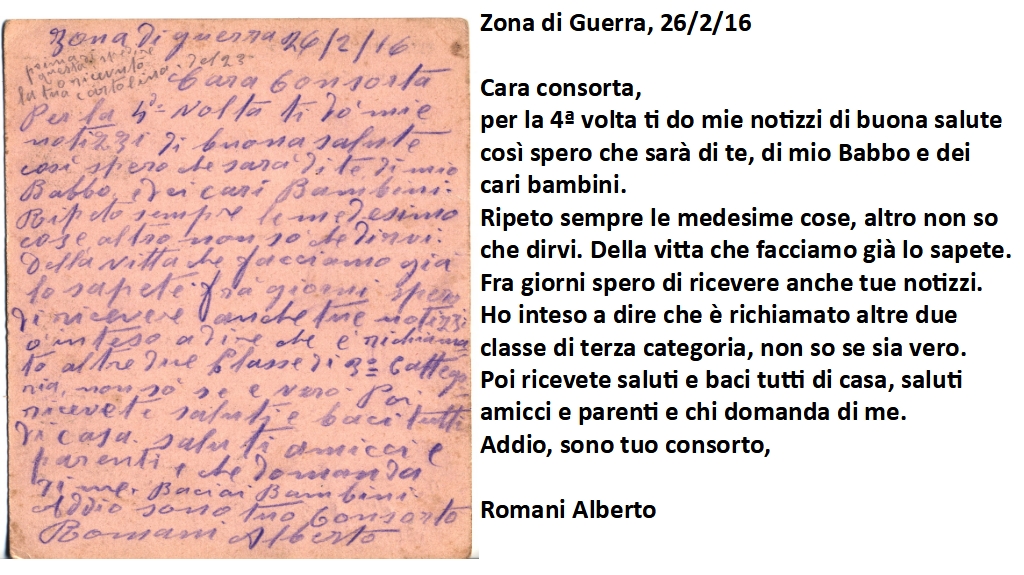 Zona di guerra 26/2/16
prima di spedire
questa
o ricevuto
la tua cartolina del 23
Cara Consorta
Per la 4ª volta ti dò mie
notizzi di buona salute
così spero che sarà di te di mio
Babbo, e dei cari Bambini.
Ripeto sempre le medesimo
cose altro non so che dirvi.
Della vitta che facciamo già
lo sapete. frà giorni spero
di ricevere anche tue notizzi
o inteso a dire che è richiama
to altre due Classe di 3ª Cattego
ria, non sò se è vero Poi
ricevete saluti e baci tutti
di casa. saluti amicci e
parenti e che domanda
di me. Baciai Bambini.
Addio sono tuo Consorto
Romani Alberto
Zona di Guerra, 26/2/16
Cara consorta,
per la 4ª volta ti do mie notizzi di buona salute
così spero che sarà di te, di mio Babbo e dei
cari bambini.
Ripeto sempre le medesime cose, altro non so
che dirvi. Della vitta che facciamo già lo sapete.
Fra giorni spero di ricevere anche tue notizzi.
Ho inteso a dire che è richiamato altre due
classe di terza categoria, non so se sia vero.
Poi ricevete saluti e baci tutti di casa, saluti
amicci e parenti e chi domanda di me.
Addio, sono tuo consorto,
Romani Alberto